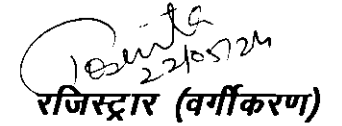 22/05/24
रजिस्ट्रार (वर्गीकरण)